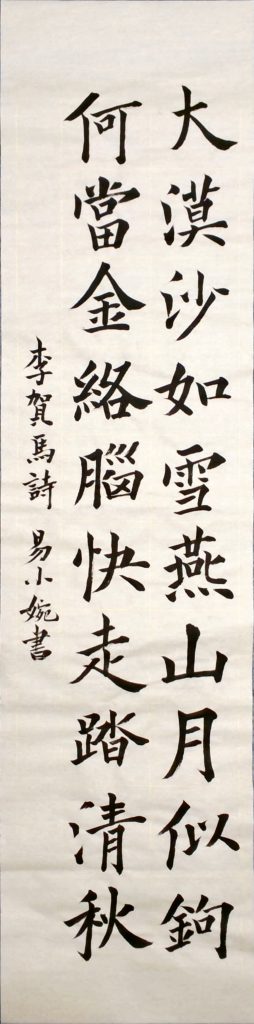 大漠沙如雪燕山月似鉤
何當金絡腦快走踏清秋
李賀馬詩 易小婉書